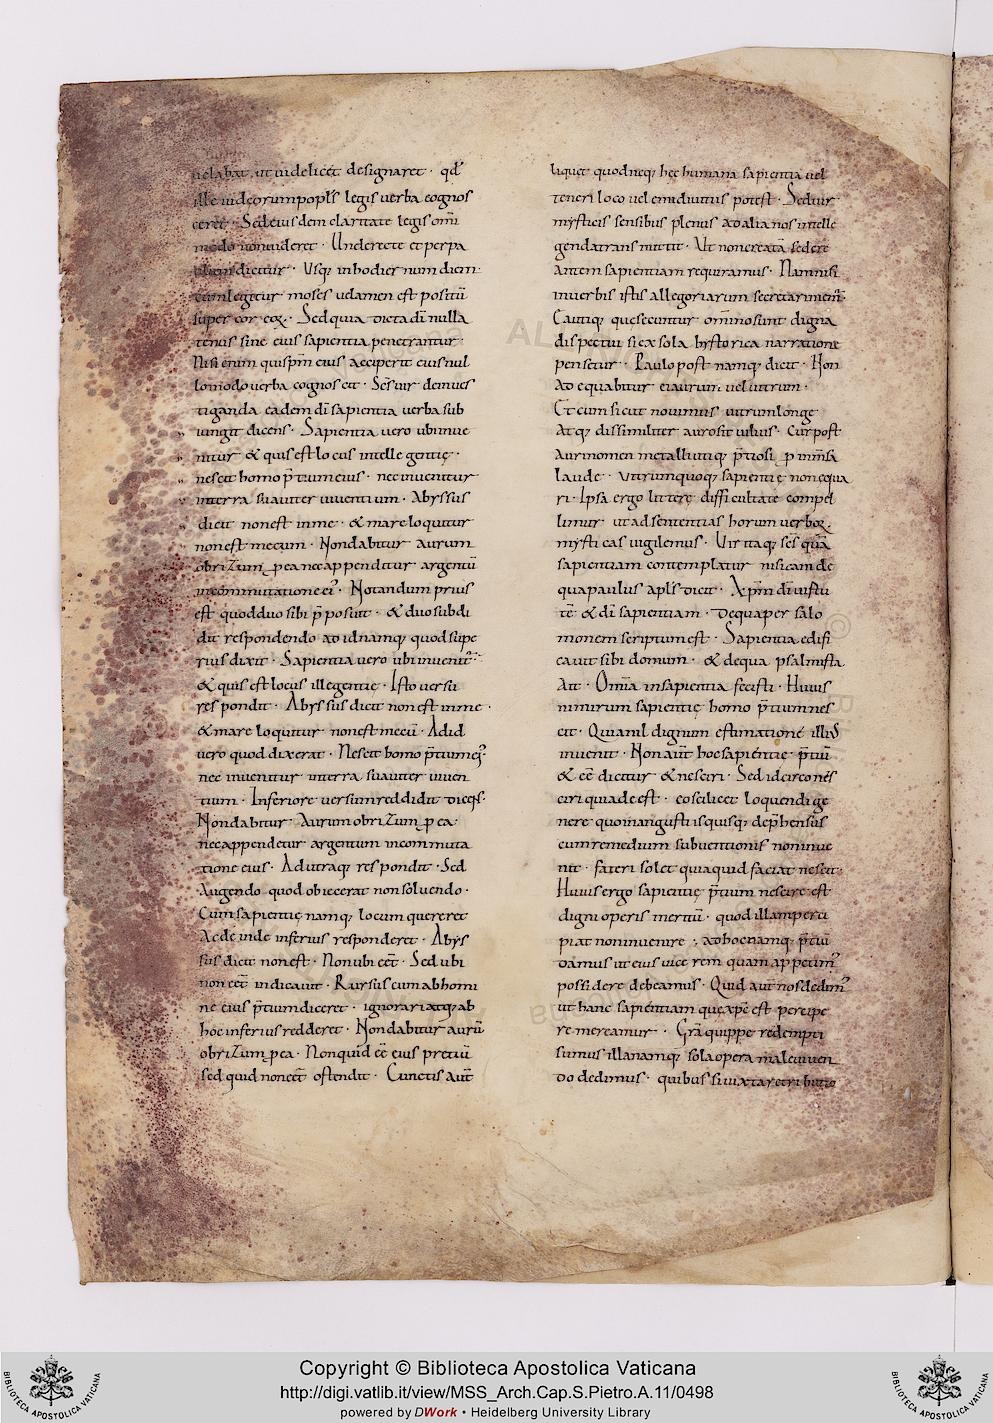 uelabat ut uidelicet designaret · qđ
ille iudeorum popl̃s legis uerba cognos
ceret · Sed eiusdem claritate legis om̃
modo non uideret · Unde recte et per pa
ulum dicitur · Usq; in hodiernum diem
cum legitur moses uelamen est positũ
super cor eoꝝ · Sed quia dicta dĩ nulla
tenus sine eius sapientia penetrantur ·
Nisi enim quispiã eius acceperit eius nul
lo modo uerba cognoscit · Sẽs uir de inues
tiganda eadem dĩ sapientia uerba sub
iungit dicens · Sapientia uero ubi inue
nitur & quis est locus intellegentię ·
nescit homo p̃tium eius · nec inuenitur
in terra suauiter uiuentium · Abyssus
dicit non est in me · & mare loquitur
non est mecum · Non dabitur aurum
obrizum ꝑ ea nec appenditur argentũ
in commutatione ei᾽ · Notandum prius
est quod duo sibi p̃posuit · & duo subdi
dit respondendo ad id namq; quod supe
rius dixit · Sapientia uero ubi inuenit᾽ ·
& quis est locus illegentię · Isto uersu
respondit · Abyssus dicit non est in me ·
& mare loquitur non est mecũ · Ad id
uero quod dixerat · Nescit homo p̃tium ei᾽ ·
nec inuenitur in terra suauiter uiuen
tium · Inferiore uersum reddidit dicẽs ·
Non dabitur · Aurum obrizum ꝑ ea ·
nec appendetur argentum in commuta
tione eius · Ad utraq; respondit · Sed
Augendo quod obiecerat non soluendo ·
Cum sapientię namq; locum quereret
Ac de inde inferius responderet · Abys
sus dicit non est · Non ubi eẽt · Sed ubi
non eẽt indicauit · Rursus cum ab homi
ne eius p̃tium diceret · ignorari atq; ab
hoc inferius redderet · Non dabitur aurũ
obrizum ꝑ ea · Non quid eẽ eius pretiũ
sed quid non eẽt ostendit · Cunctis aũt
liquet quod neq; hęc humana sapientia uel
teneri loco uel emi diuitiis potest · Sed uir
mysticis sensibus plenus ad alia nos intelle
genda transmittit · Ut non creatã sed cre
antem sapientiam requiramus · Nam nisi
in uerbis istis allegoriarum secreta rimem᾽ ·
Cautiq; que secuntur omnino sunt digna
dispectui si ex sola hystorica narratione
pensetur · Paulo post namq; dicit · Non
Ad equabitur ei aurum uel uitrum ·
Et cum sicut nouimus uitrum longe
Atq; dissimiliter auro sit uilius · Cur post
Aurinomen metalli utiq; p̃tiosi ꝓ inm̃sa
laude · Vitrum quoq; sapientię non equa
ri · Ipsa ergo litterę difficultate compel
limur ut ad sententias horum uerboꝝ
mysticas uigilemus · Vir itaq; sc̃s quã
sapientiam contemplatur nisi eam de
qua paulus apl̃s dicit · Xp̃m dĩ uirtu
tẽ & dĩ sapientiam · De qua per salo
monem scriptum est · Sapientia edifi
cauit sibi domum · & de qua psalmista
Ait · Omĩa in sapientia fecisti · Huius
nimirum sapientię homo p̃tium nes
cit · Quia nil dignum estimatione illius
inuenit · Non aũt hoc sapiẽntię p̃tiũ
& eẽ dicitur & nesciri · Sed idcirco nes
ciri quia deest · eo scilicet loquendi ge
nere quo in angustiis quisq; dep̃hensus
cum remedium subuentionis non inue
nit · fateri solet quia quid faciat nescit ·
Huius ergo sapientię p̃tium nescire est
digni operis meritũ · quod illam perci
piat non inuenire · ad hoc namq; p̃tiũ
damus ut eius uice rem quam appetim᾽
possidere debeamus · Quid aũt nos dedim᾽
ut hanc sapiẽntiam que xp̃c est percipe
re mereamur · Gr̃a quippe redempti
sumus illa namq; sola opera male uiuen
do dedimus · quibus si iuxta retributio
Copyright © Biblioteca Apostolica Vaticana
http://digi.vatlib.it/view/MSS_Arch.Cap.S.Pietro.A.11/0498
powered by DWork • Heidelberg University Library
BIBLIOTECA APOSTOLICA VATICANA
BIBLIOTECA APOSTOLICA VATICANA